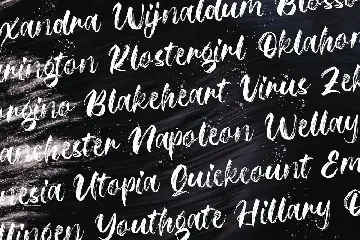 xandra Wijnaldum Blosso
rington Klostergirl Oklahom
orgino Blakeheart Virus Zek
anchester Napoleon Wellay
nesia Utopia Quickcount Em
llingen Youthgate Hillary